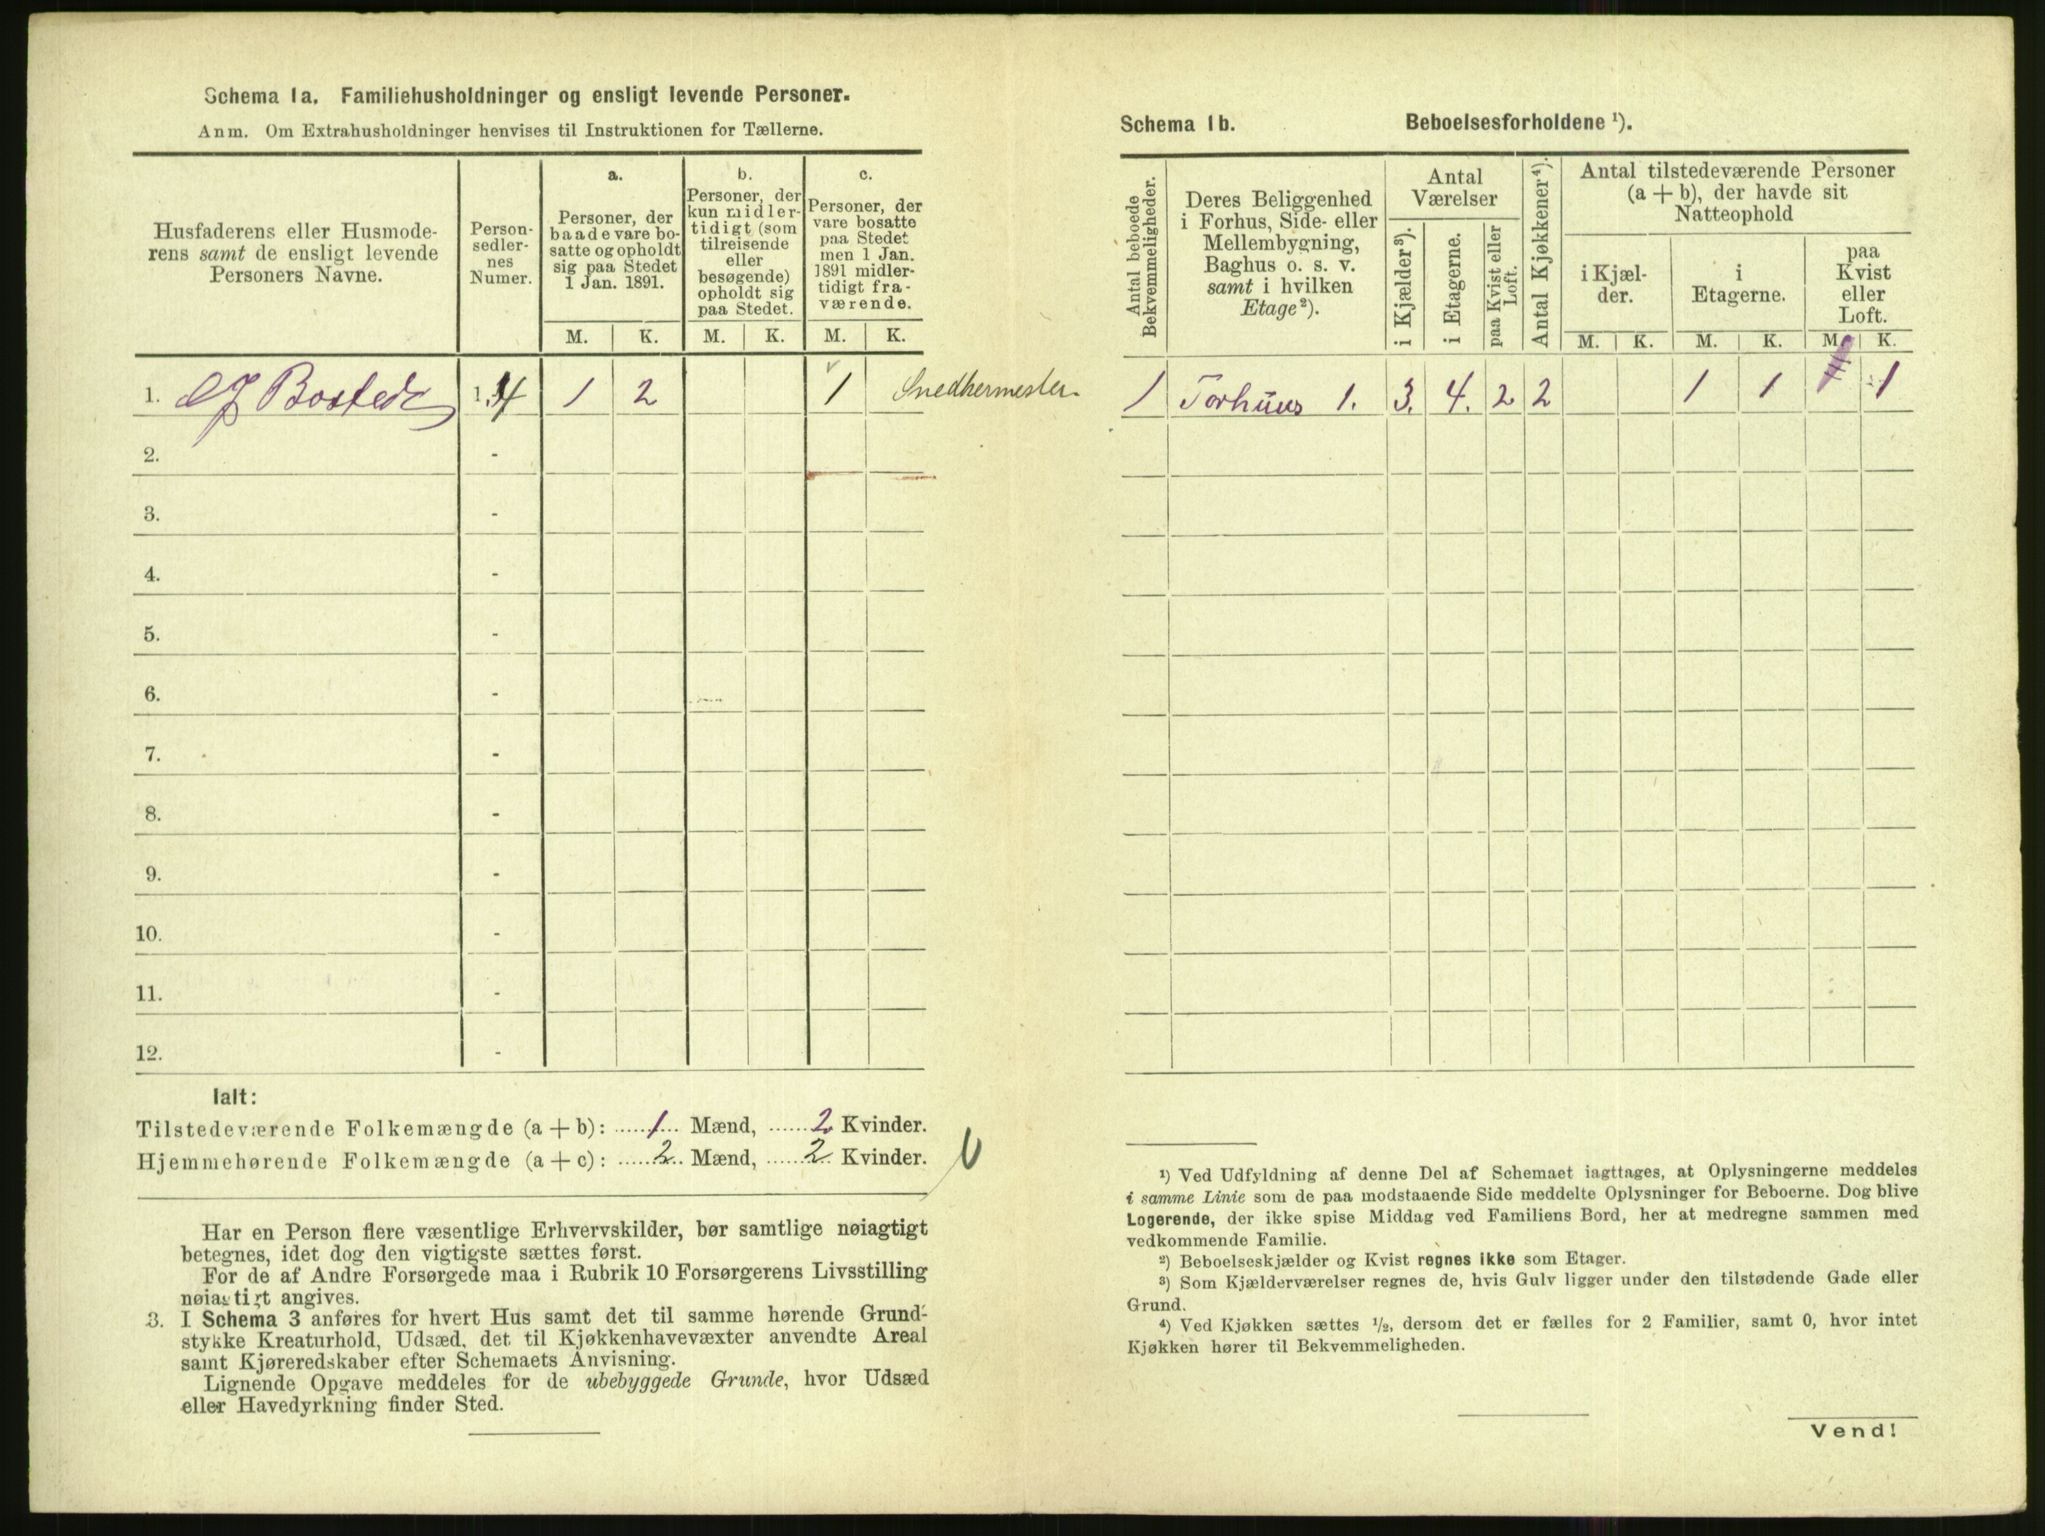 Schema 1a. Familiehusholdninger og ensligt levende Personer.
Anm. Om Extrahusholdninger henvises til Instruktionen for Tællerne.
Husfaderens eller Husmode-
rens samt de ensligt levende
Personers Navne.
Person-
sedler-
nes
Numer.
a.
Personer, der
baade vare bo-
satte og opholdt
sig paa Stedet
1 Jan. 1891.
b.
Personer, der
kun midler-
tidigt (som
tilreisende
eller
besøgende)
opholdt sig
paa Stedet.
c.
Personer, der
vare bosatte
paa Stedet
men 1 Jan.
1891 midler-
tidigt fra-
værende.
M. K. M. K. M. K.
1. Bostede 1 2 1 Snedkermester
2. -
3. -
4. -
5. -
6. -
7. -
8. -
9. -
10. -
11. -
12. -
Ialt:
Tilstedeværende Folkemængde (a + b): 1 Mænd, 2 Kvinder.
Hjemmehørende Folkemængde (a + c): 2 Mænd, 2 Kvinder.
Har en Person flere væsentlige Erhvervskilder, bør samtlige nøiagtigt
betegnes, idet dog den vigtigste sættes først.
For de af Andre Forsørgede maa i Rubrik 10 Forsørgerens Livsstilling
nøiagtigt angives.
3. I Schema 3 anføres for hvert Hus samt det til samme hørende Grund-
stykke Kreaturhold, Udsæd, det til Kjøkkenhavevæxter anvendte Areal
samt Kjøreredskaber efter Schemaets Anvisning.
Lignende Opgave meddeles for de ubebyggede Grunde, hvor Udsæd
eller Havedyrkning finder Sted.
Schema 1b. Beboelsesforholdene ¹).
Antal beboede
Bekvemmeligheder.
Deres Beliggenhed
i Forhus, Side- eller
Mellembygning,
Baghus o. s. v.
samt i hvilken
Etage ²).
Antal
Værelser
i Kjælder ³).
i Etagerne.
paa Kvist eller
Loft.
Antal Kjøkkener ⁴).
Antal tilstedeværende Personer
(a + b), der havde sit
Natteophold
i Kjæl-
der.
i
Etagerne.
paa
Kvist
eller
Loft.
M. K. M. K. M. K.
1 Forhuus 1. 3. 4. 2 2 1 1 1
¹) Ved Udfyldning af denne Del af Schemaet iagttages, at Oplysningerne meddeles
i samme Linie som de paa modstaaende Side meddelte Oplysninger for Beboerne. Dog blive
Logerende, der ikke spise Middag ved Familiens Bord, her at medregne sammen med
vedkommende Familie.
²) Beboelseskjælder og Kvist regnes ikke som Etager.
³) Som Kjælderværelser regnes de, hvis Gulv ligger under den tilstødende Gade eller
Grund.
⁴) Ved Kjøkken sættes ½, dersom det er fælles for 2 Familier, samt 0, hvor intet
Kjøkken hører til Bekvemmeligheden.
Vend!